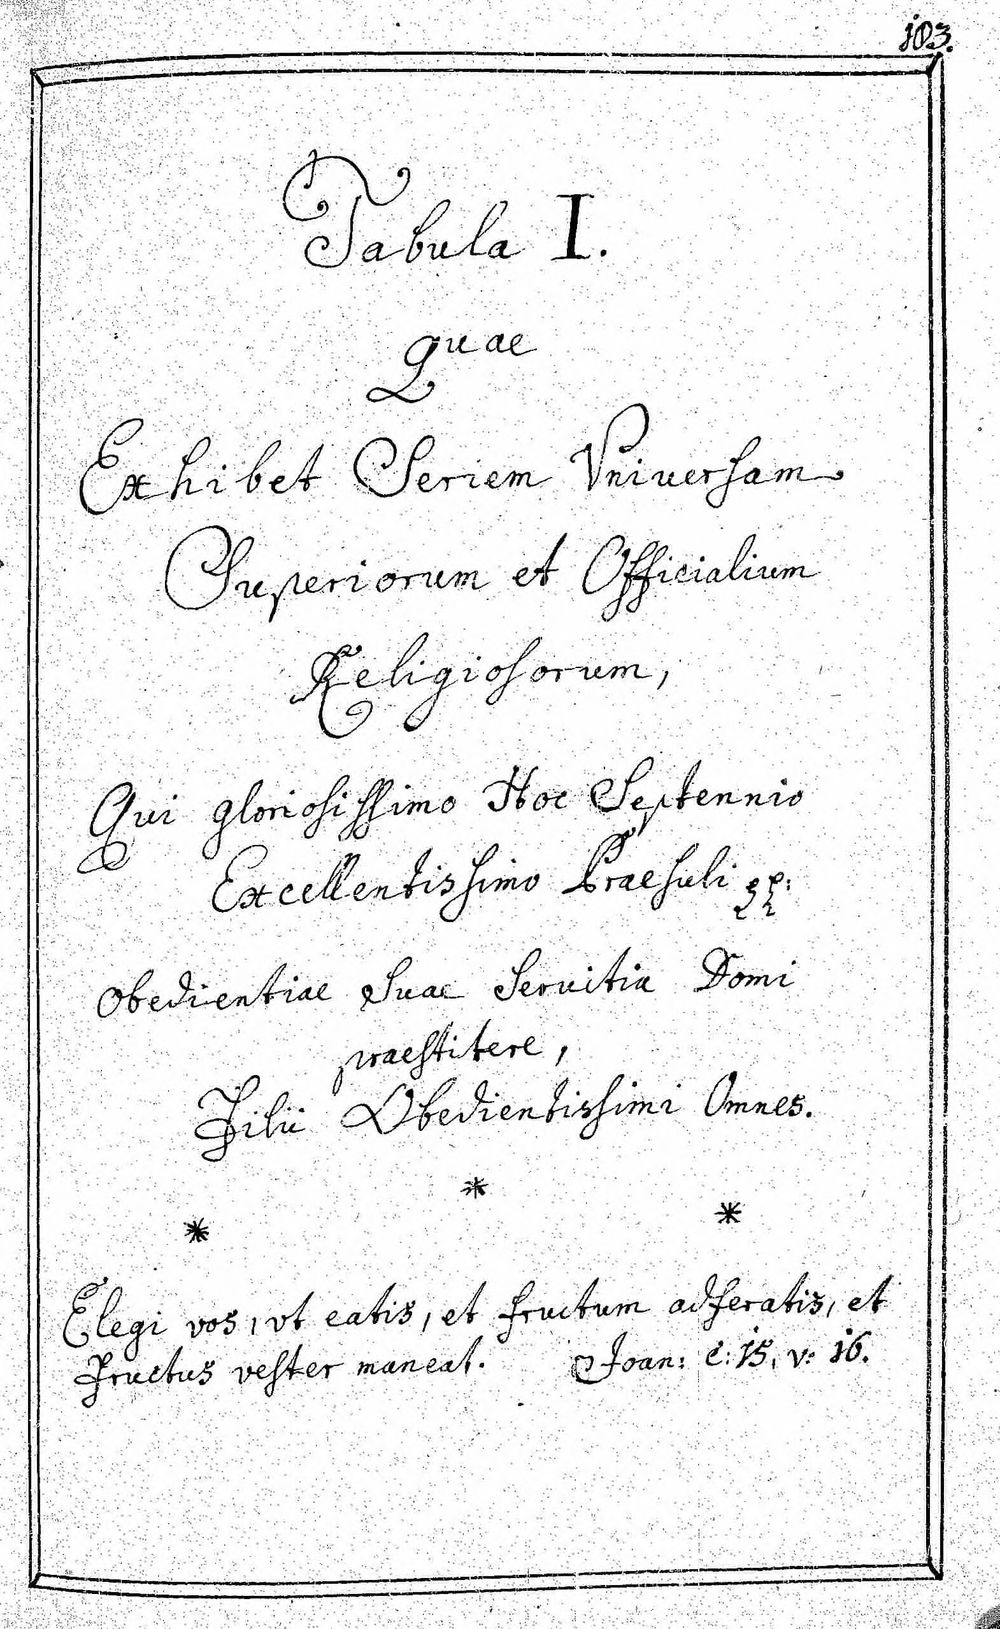 103.
Tabula I.
Quae
Exhibet Seriem Vniuersam
Superiorum et Officialium
Religiosorum,
Qui gloriosissimo Hoc Septennio
Excellentissimo Praesuli
Obedientiae Suae Seruitia Domi
praestitere,
Filii Obedientissimi Omnes.
* * *
Elegi vos, vt eatis, et fructum adferatis, et
fructus vester maneat. Joan: C: 15, v: 16.